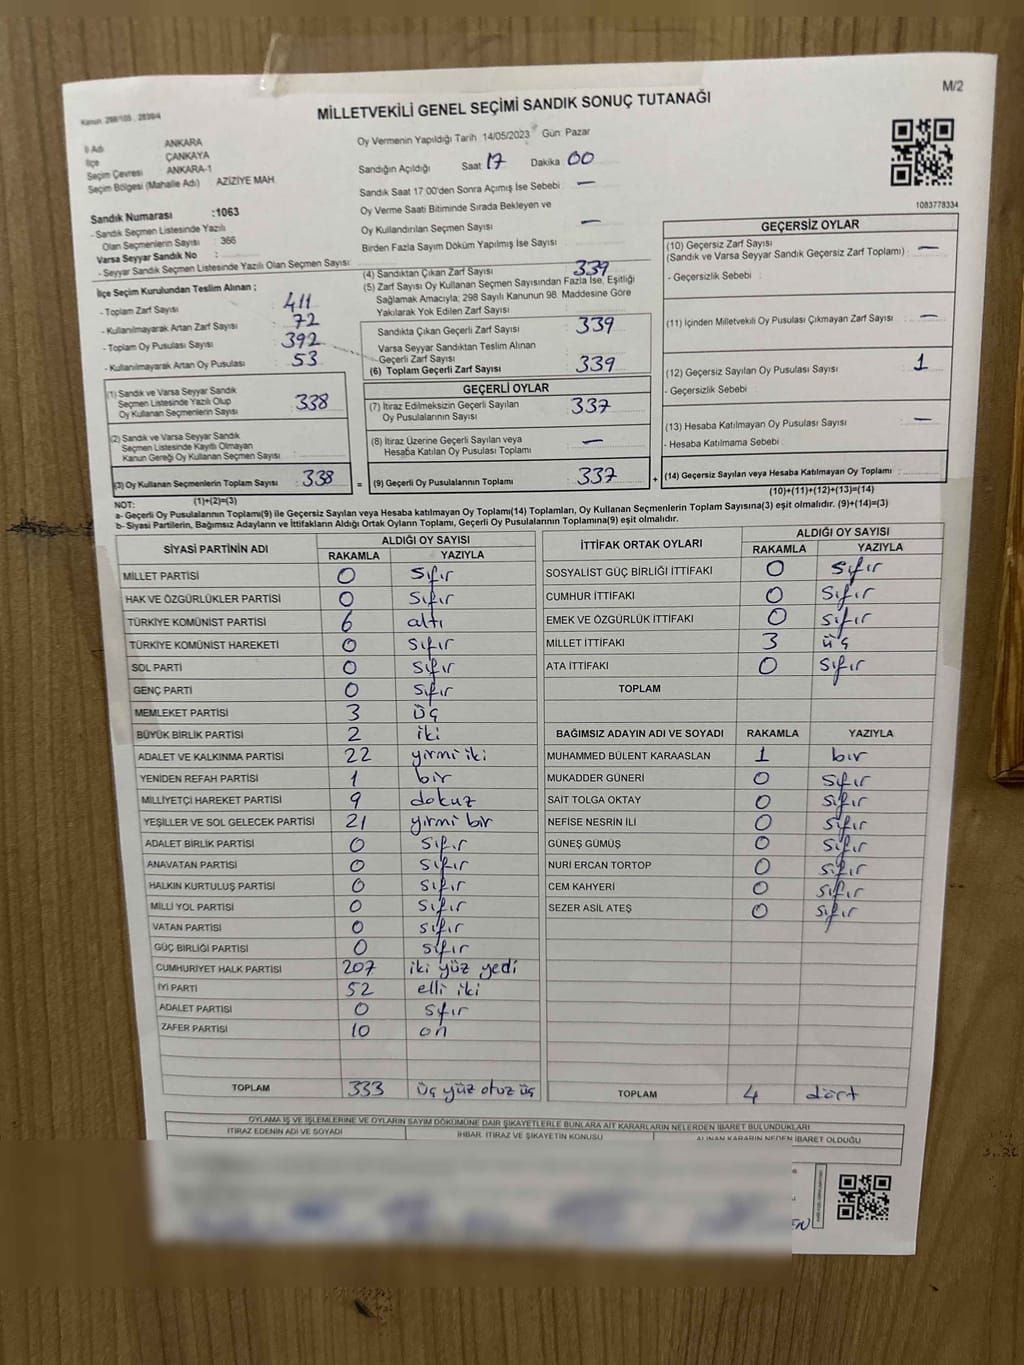 M/2
Kanun: 298/105 , 2839/4
MİLLETVEKİLİ GENEL SEÇİMİ SANDIK SONUÇ TUTANAĞI
İl Adı ANKARA
İlçe ÇANKAYA
Seçim Çevresi ANKARA-1
Seçim Bölgesi (Mahalle Adı) AZİZİYE MAH.
Sandık Numarası :1063
- Sandık Seçmen Listesinde Yazılı
Olan Seçmenlerin Sayısı : 366
Varsa Seyyar Sandık No :
- Seyyar Sandık Seçmen Listesinde Yazılı Olan Seçmen Sayısı:
Oy Vermenin Yapıldığı Tarih :14/05/2023 Gün: Pazar
Sandığın Açıldığı Saat 17 Dakika 00
Sandık Saat 17:00'den Sonra Açımış İse Sebebi —
Oy Verme Saati Bitiminde Sırada Bekleyen ve
Oy Kullandırılan Seçmen Sayısı —
Birden Fazla Sayım Döküm Yapılmış İse Sayısı
1083778334
İlçe Seçim Kurulundan Teslim Alınan ;
- Toplam Zarf Sayısı : 411
- Kullanılmayarak Artan Zarf Sayısı : 72
- Toplam Oy Pusulası Sayısı : 392
- Kullanılmayarak Artan Oy Pusulası : 53
(1) Sandık ve Varsa Seyyar Sandık
Seçmen Listesinde Yazılı Olup
Oy Kullanan Seçmenlerin Sayısı : 338
(2) Sandık ve Varsa Seyyar Sandık
Seçmen Listesinde Kayıtlı Olmayan
Kanun Gereği Oy Kullanan Seçmen Sayısı :
(3) Oy Kullanan Seçmenlerin Toplam Sayısı : 338
(1)+(2)=(3)
(4) Sandıktan Çıkan Zarf Sayısı : 339
(5) Zarf Sayısı Oy Kullanan Seçmen Sayısından Fazla İse, Eşitliği
Sağlamak Amacıyla; 298 Sayılı Kanunun 98. Maddesine Göre
Yakılarak Yok Edilen Zarf Sayısı :
Sandıkta Çıkan Geçerli Zarf Sayısı : 339
Varsa Seyyar Sandıktan Teslim Alınan
Geçerli Zarf Sayısı :
(6) Toplam Geçerli Zarf Sayısı : 339
GEÇERLİ OYLAR
(7) İtiraz Edilmeksizin Geçerli Sayılan
Oy Pusulalarının Sayısı : 337
(8) İtiraz Üzerine Geçerli Sayılan veya
Hesaba Katılan Oy Pusulası Toplamı : —
= (9) Geçerli Oy Pusulalarının Toplamı : 337 +
GEÇERSİZ OYLAR
(10) Geçersiz Zarf Sayısı
(Sandık ve Varsa Seyyar Sandık Geçersiz Zarf Toplamı) : —
- Geçersizlik Sebebi :
(11) İçinden Milletvekili Oy Pusulası Çıkmayan Zarf Sayısı : —
(12) Geçersiz Sayılan Oy Pusulası Sayısı : 1
- Geçersizlik Sebebi :
(13) Hesaba Katılmayan Oy Pusulası Sayısı : —
- Hesaba Katılmama Sebebi :
(14) Geçersiz Sayılan veya Hesaba Katılmayan Oy Toplamı :
(10)+(11)+(12)+(13)=(14)
NOT:
a- Geçerli Oy Pusulalarının Toplamı(9) ile Geçersiz Sayılan veya Hesaba katılmayan Oy Toplamı(14) Toplamları, Oy Kullanan Seçmenlerin Toplam Sayısına(3) eşit olmalıdır. (9)+(14)=(3)
b- Siyasi Partilerin, Bağımsız Adayların ve İttifakların Aldığı Ortak Oyların Toplamı, Geçerli Oy Pusulalarının Toplamına(9) eşit olmalıdır.
SİYASİ PARTİNİN ADI ALDIĞI OY SAYISI
RAKAMLA YAZIYLA
MİLLET PARTİSİ 0 sıfır
HAK VE ÖZGÜRLÜKLER PARTİSİ 0 sıfır
TÜRKİYE KOMÜNİST PARTİSİ 6 altı
TÜRKİYE KOMÜNİST HAREKETİ 0 sıfır
SOL PARTİ 0 sıfır
GENÇ PARTİ 0 sıfır
MEMLEKET PARTİSİ 3 üç
BÜYÜK BİRLİK PARTİSİ 2 iki
ADALET VE KALKINMA PARTİSİ 22 yirmi iki
YENİDEN REFAH PARTİSİ 1 bir
MİLLİYETÇİ HAREKET PARTİSİ 9 dokuz
YEŞİLLER VE SOL GELECEK PARTİSİ 21 yirmi bir
ADALET BİRLİK PARTİSİ 0 sıfır
ANAVATAN PARTİSİ 0 sıfır
HALKIN KURTULUŞ PARTİSİ 0 sıfır
MİLLİ YOL PARTİSİ 0 sıfır
VATAN PARTİSİ 0 sıfır
GÜÇ BİRLİĞİ PARTİSİ 0 sıfır
CUMHURİYET HALK PARTİSİ 207 iki yüz yedi
İYİ PARTİ 52 elli iki
ADALET PARTİSİ 0 sıfır
ZAFER PARTİSİ 10 on
TOPLAM 333 üç yüz otuz üç
İTTİFAK ORTAK OYLARI ALDIĞI OY SAYISI
RAKAMLA YAZIYLA
SOSYALİST GÜÇ BİRLİĞİ İTTİFAKI 0 sıfır
CUMHUR İTTİFAKI 0 sıfır
EMEK VE ÖZGÜRLÜK İTTİFAKI 0 sıfır
MİLLET İTTİFAKI 3 üç
ATA İTTİFAKI 0 sıfır
TOPLAM
BAĞIMSIZ ADAYIN ADI VE SOYADI RAKAMLA YAZIYLA
MUHAMMED BÜLENT KARAASLAN 1 bir
MUKADDER GÜNERİ 0 sıfır
SAİT TOLGA OKTAY 0 sıfır
NEFİSE NESRİN İLİ 0 sıfır
GÜNEŞ GÜMÜŞ 0 sıfır
NURİ ERCAN TORTOP 0 sıfır
CEM KAHYERİ 0 sıfır
SEZER ASİL ATEŞ 0 sıfır
TOPLAM 4 dört
OYLAMA İŞ VE İŞLEMLERİNE VE OYLARIN SAYIM DÖKÜMÜNE DAİR ŞİKAYETLERLE BUNLARA AİT KARARLARIN NELERDEN İBARET BULUNDUKLARI
İTİRAZ EDENİN ADI VE SOYADI İHBAR, İTİRAZ VE ŞİKAYETİN KONUSU ALINAN KARARIN NEDEN İBARET OLDUĞU